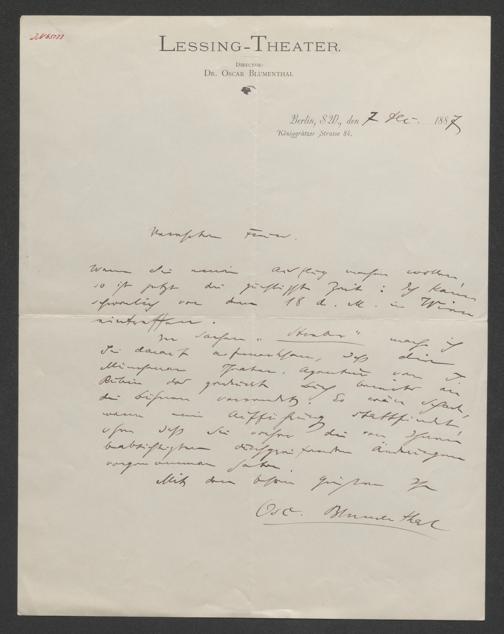 LESSING-THEATER.
DIRECTOR:
DR. OSCAR BLUMENTHAL
Berlin, S.W., den 7 Dec. 1887
Königgrätzer Strasse 84.
Verehrter Freund.
Wenn Sie einen Ausflug machen wollen,
so ist jetzt die günstigste Zeit: Ich kann
schwerlich vor dem 18 d. M. in Wien
eintreffen.
In Sachen " " mache ich
Sie darauf aufmerksam, daß die
Münchener Theater-Agentur von
Rubin das gedruckte Buch bereits an
die Bühnen versendet. Es wäre schade,
wenn eine Aufführung stattfindet,
ohne daß Sie vorher die von Ihnen
beabsichtigten Änderungen
vorgenommen haben.
Mit den besten Grüßen Ihr
Osc. Blumenthal